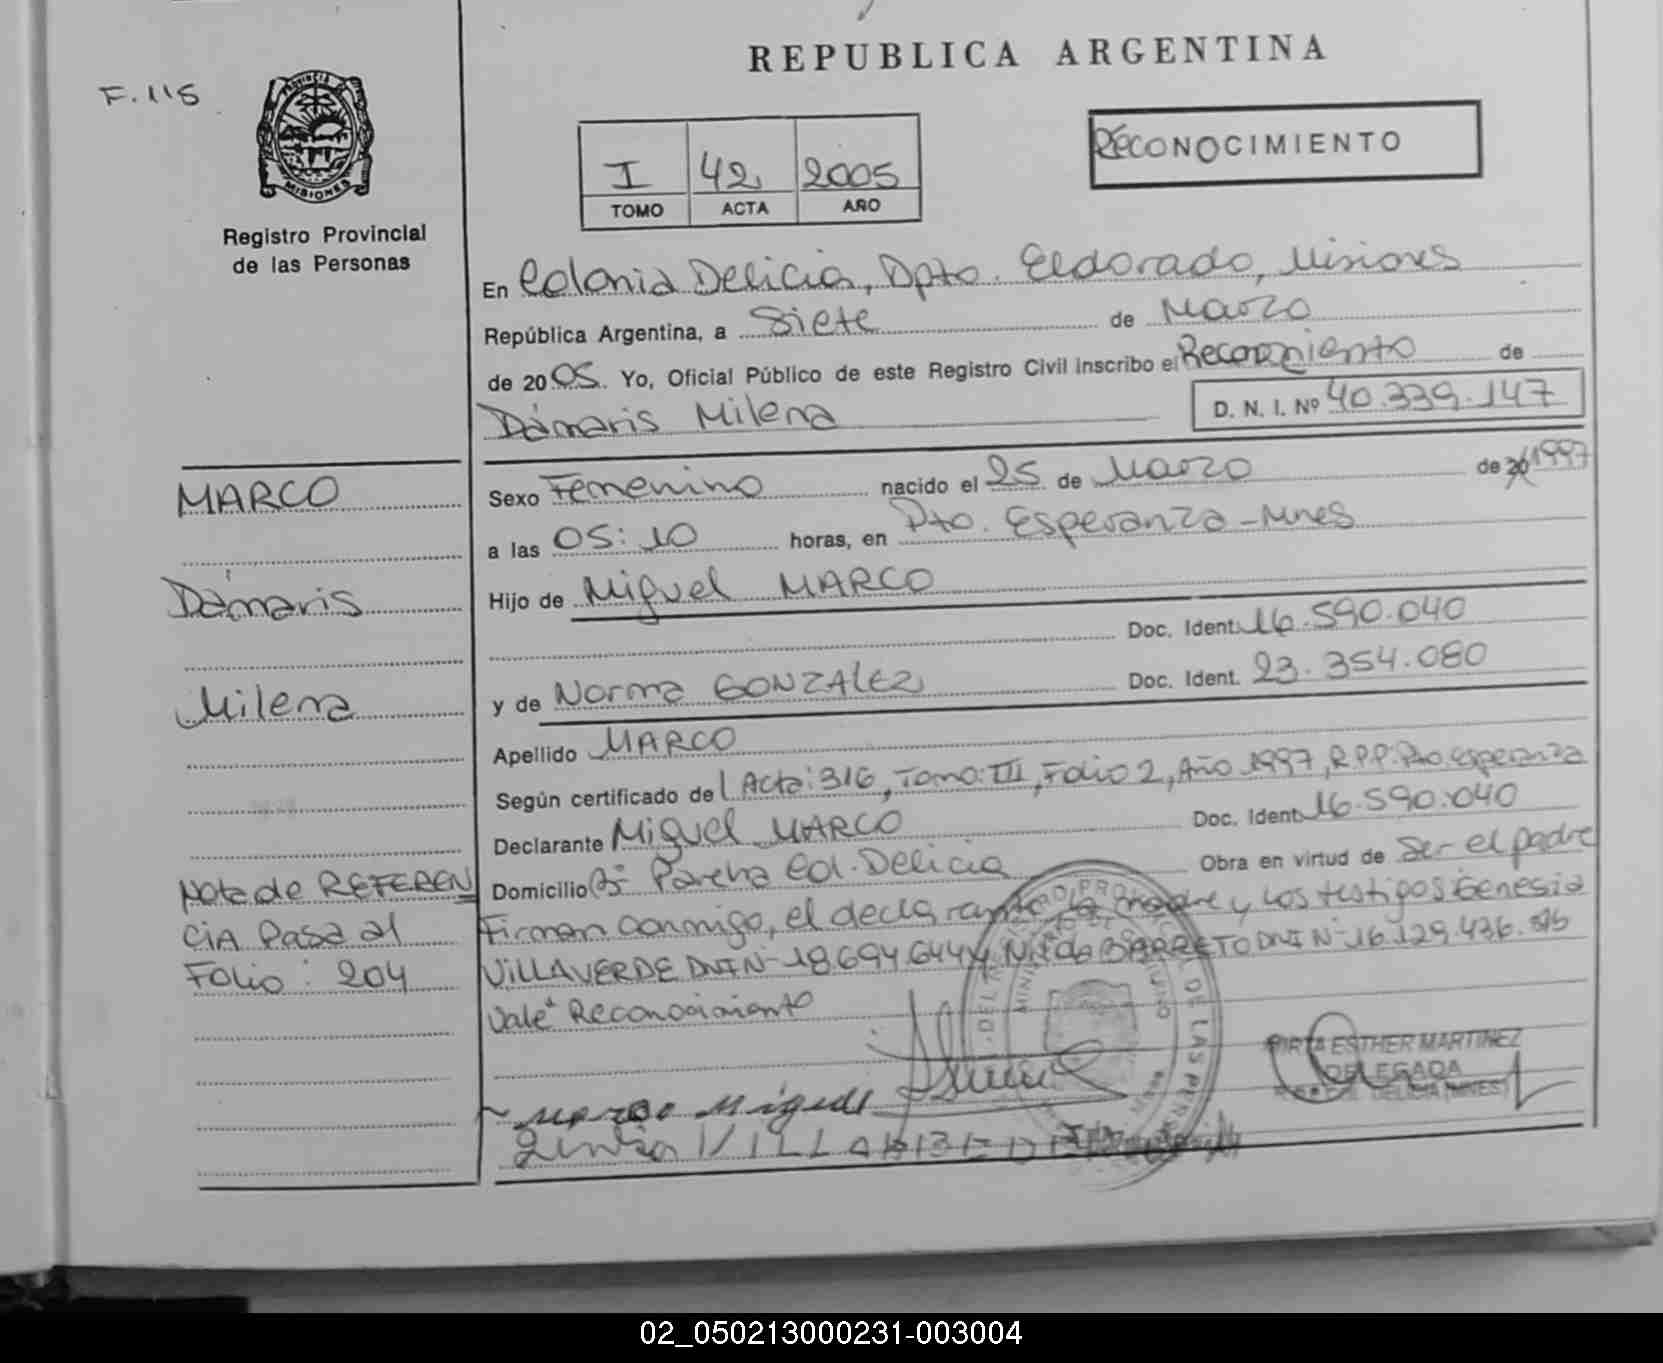 REPUBLICA ARGENTINA
F.115
PROVINCIA DE
MISIONES
Registro Provincial
de las Personas
I 42 2005
TOMO ACTA AÑO
RECONOCIMIENTO
En Colonia Delicia, Dpto. Eldorado, Misiones
República Argentina, a Siete de Marzo
de 2005. Yo, Oficial Público de este Registro Civil Inscribo el Reconmiento de
Dámaris Milena D. N. I. Nº 40.339.147
MARCO
Dámaris
Milena
Sexo Femenino nacido el 25 de Marzo de 20 1997
a las 05:10 horas, en Pto. Esperanza-Mnes
Hijo de Miguel MARCO
Doc. Ident. 16.590.040
y de Norma GONZALEZ Doc. Ident. 23.354.080
Apellido MARCO
Según certificado de Acta: 316, Tomo: III, Folio 2, Año 1997, R.P.P. Pto. Esperanza
Declarante Miguel MARCO Doc. Ident. 16.590.040
Domicilio Bº Parcha Col. Delicia Obra en virtud de Ser el padre
Firman conmigo, el declarante, la madre y los testigos Genesia
VILLAVERDE DNI Nº 18.694.644 y Nilda BARRETO DNI Nº 16.129.436.
Vale" Reconocimiento
Nota de REFEREN
CIA Pasa al
Folio: 204
Marco Miguel
MIRTA ESTHER MARTINEZ
DELEGADA
DELICIA (MNES)
VILLABERDE
02_050213000231-003004